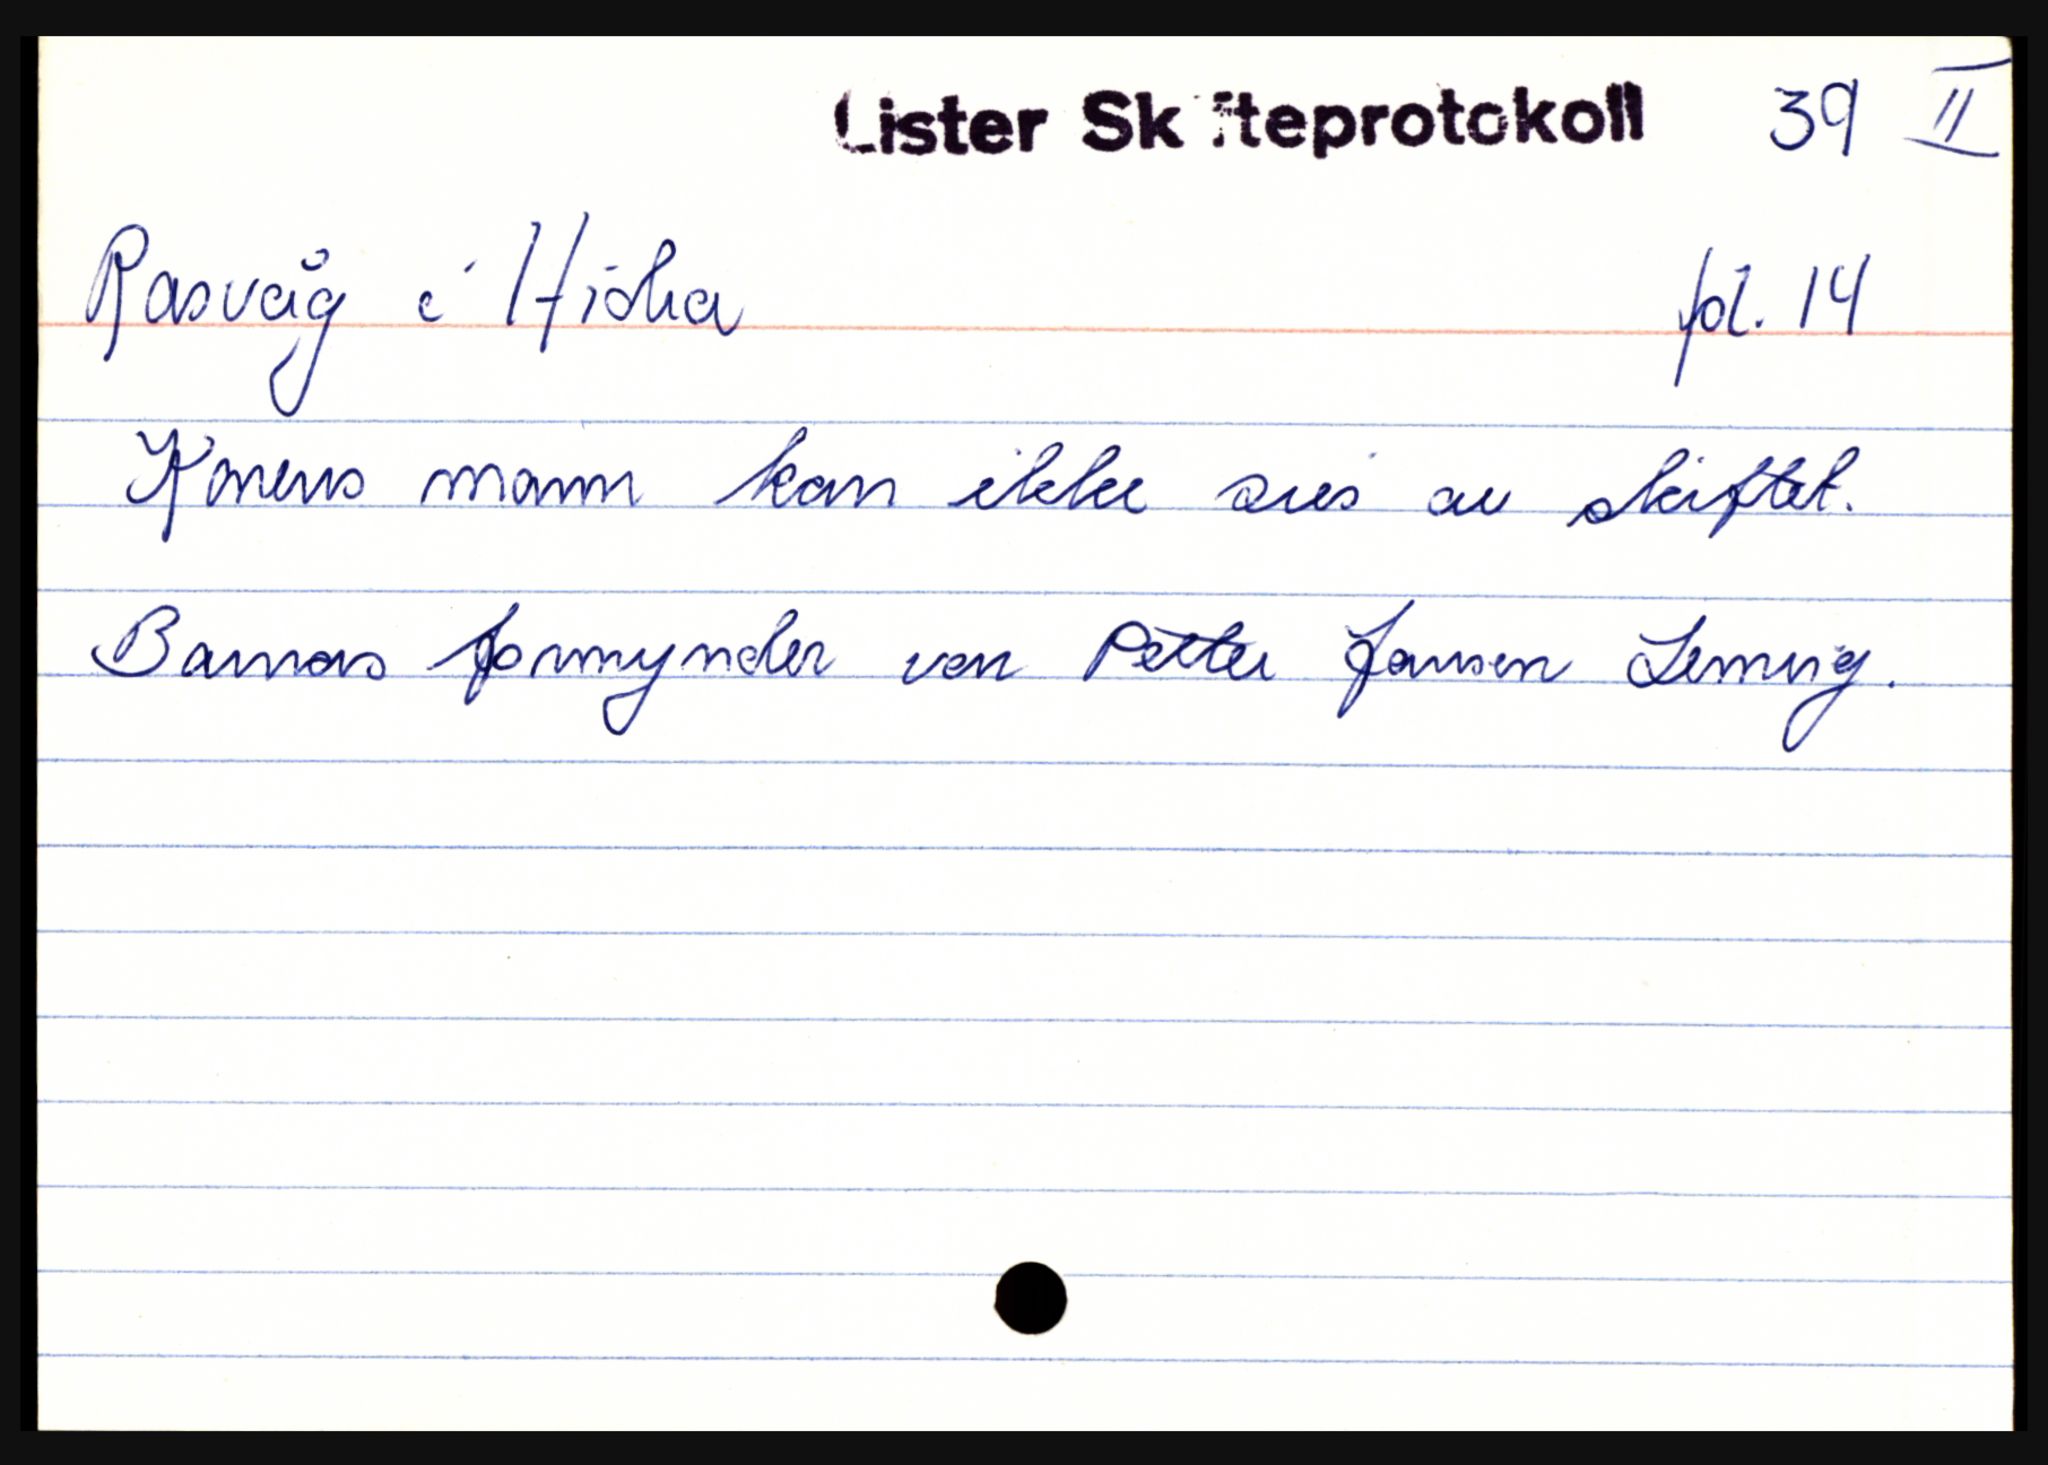 Lister Skifteprotokoll 39 II
Rasvåg i Hidra fol. 14
Konens mann kan ikke sies av skiftet.
Barnas formynder von Petter Jansen Lemvig.